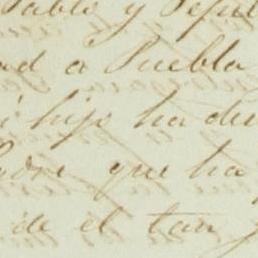 Pablo y Pepul
ad a Puebla
i hijo ha de
adre que ha
de el tan